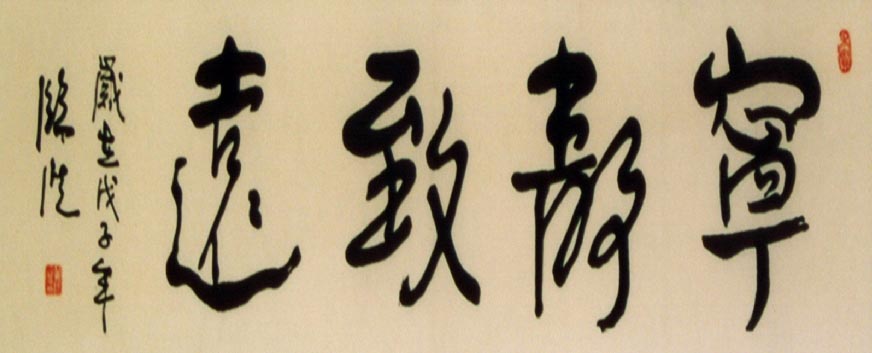 寧靜致遠
歲在戊子年